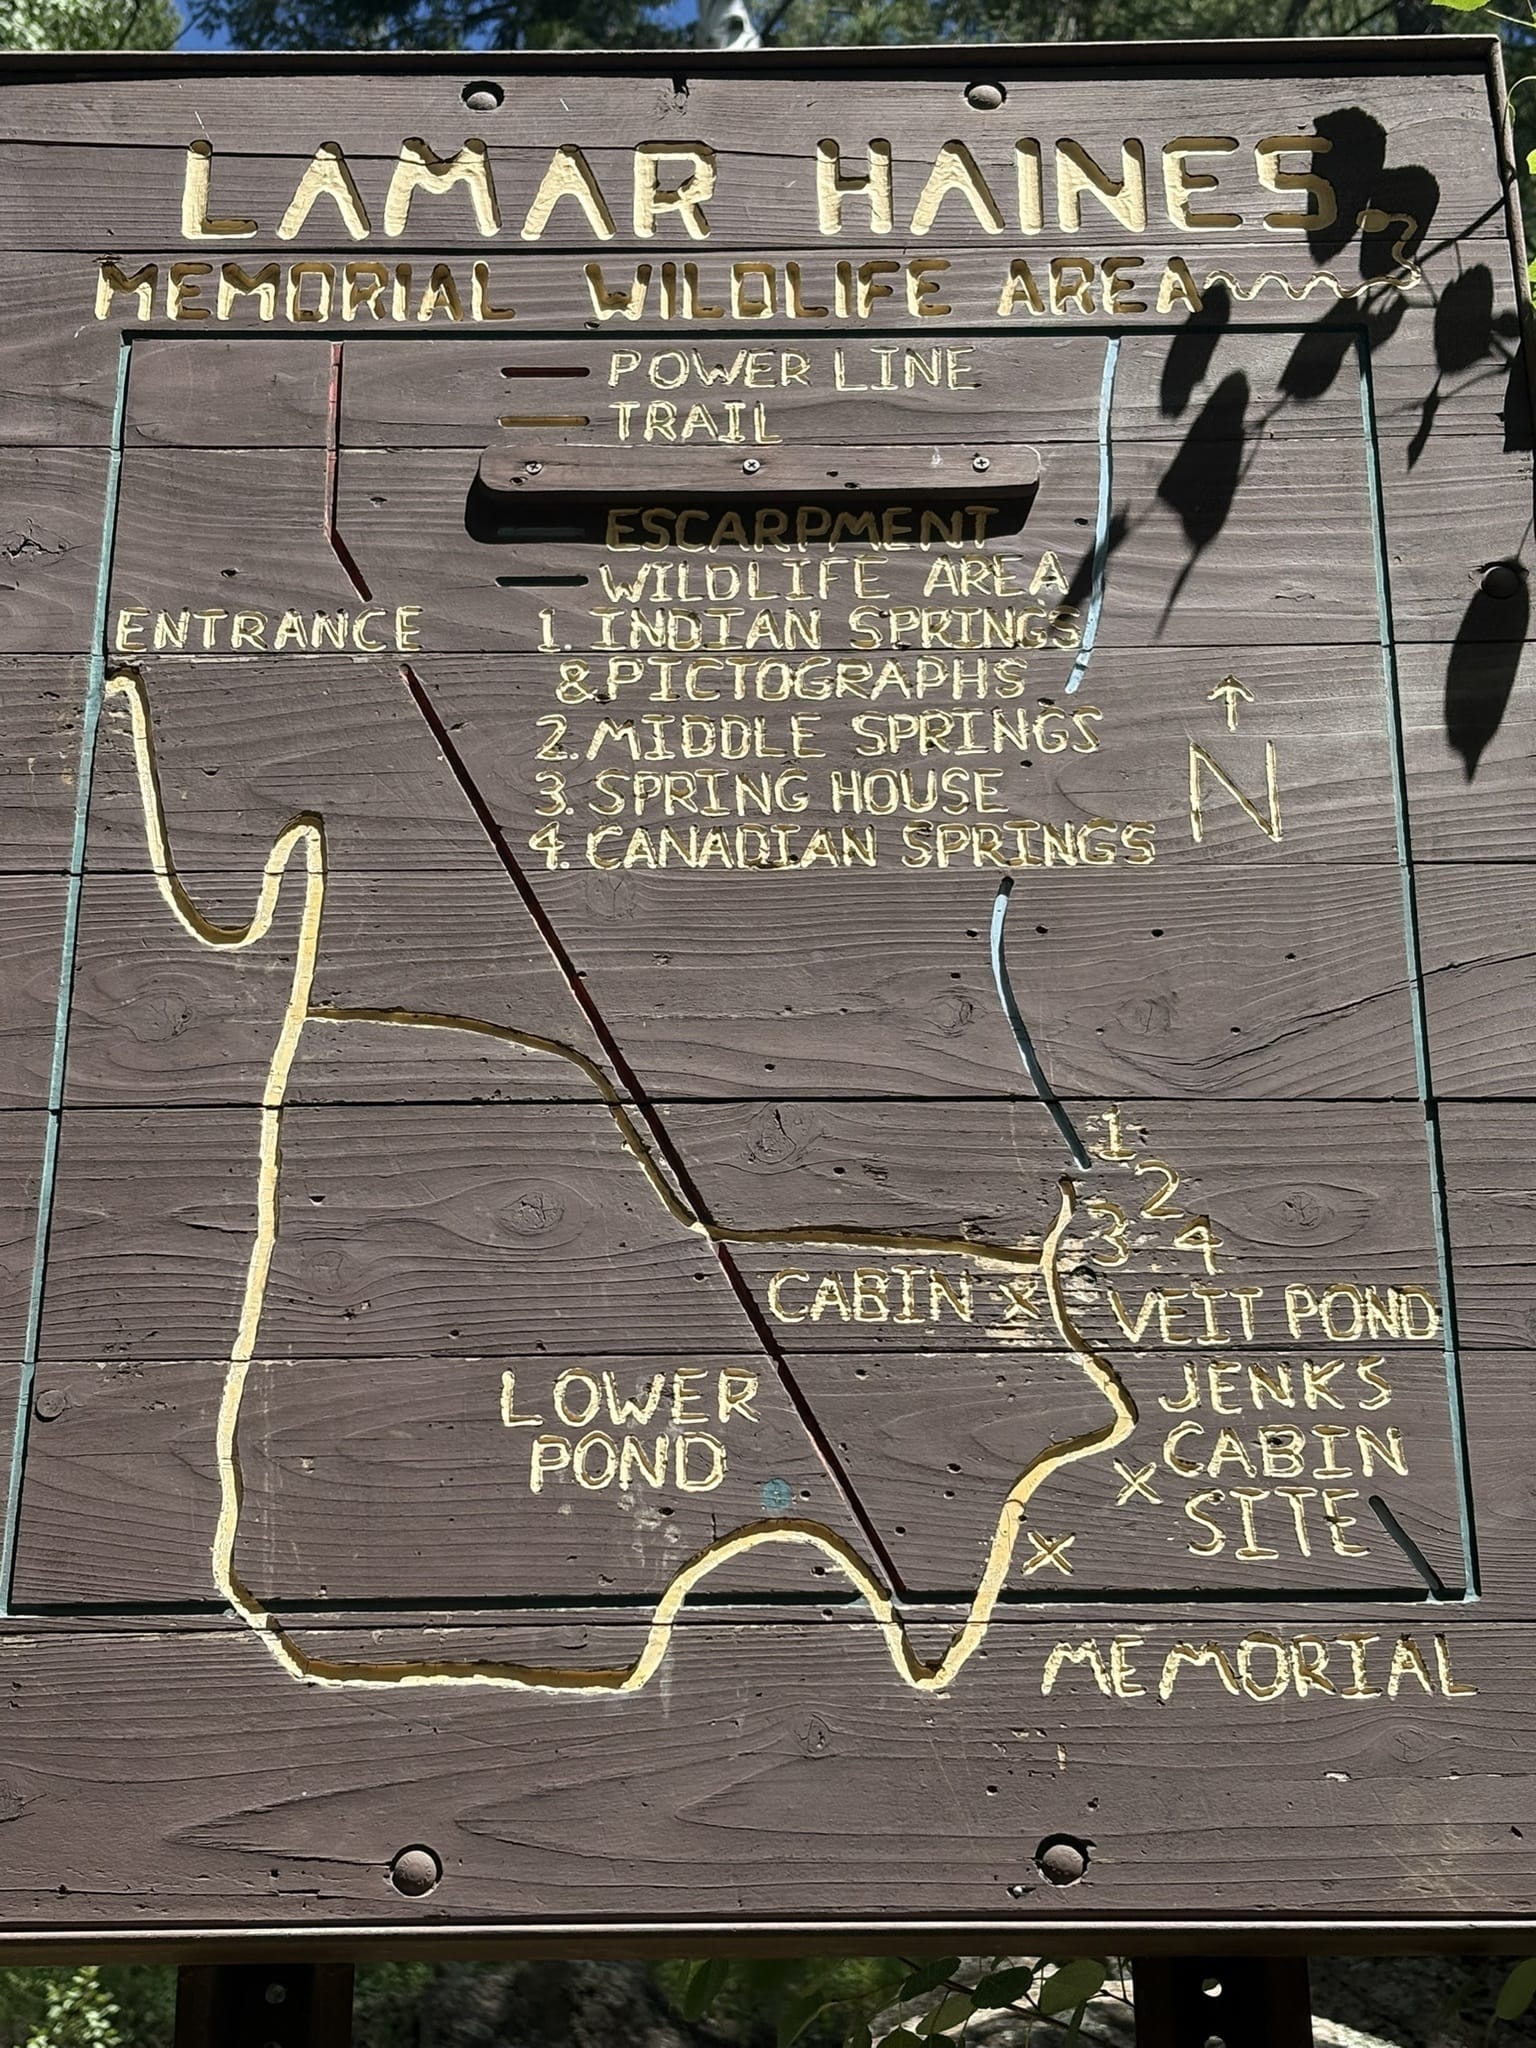 LAMAR HAINES
MEMORIAL WILDLIFE AREA
POWER LINE
TRAIL
ESCARPMENT
WILDLIFE AREA
ENTRANCE
1. INDIAN SPRINGS
& PICTOGRAPHS
2. MIDDLE SPRINGS
3. SPRING HOUSE
4. CANADIAN SPRINGS
N
1
2
3 4
CABIN X
VEIT POND
LOWER
POND
JENKS
X CABIN
SITE
X
MEMORIAL